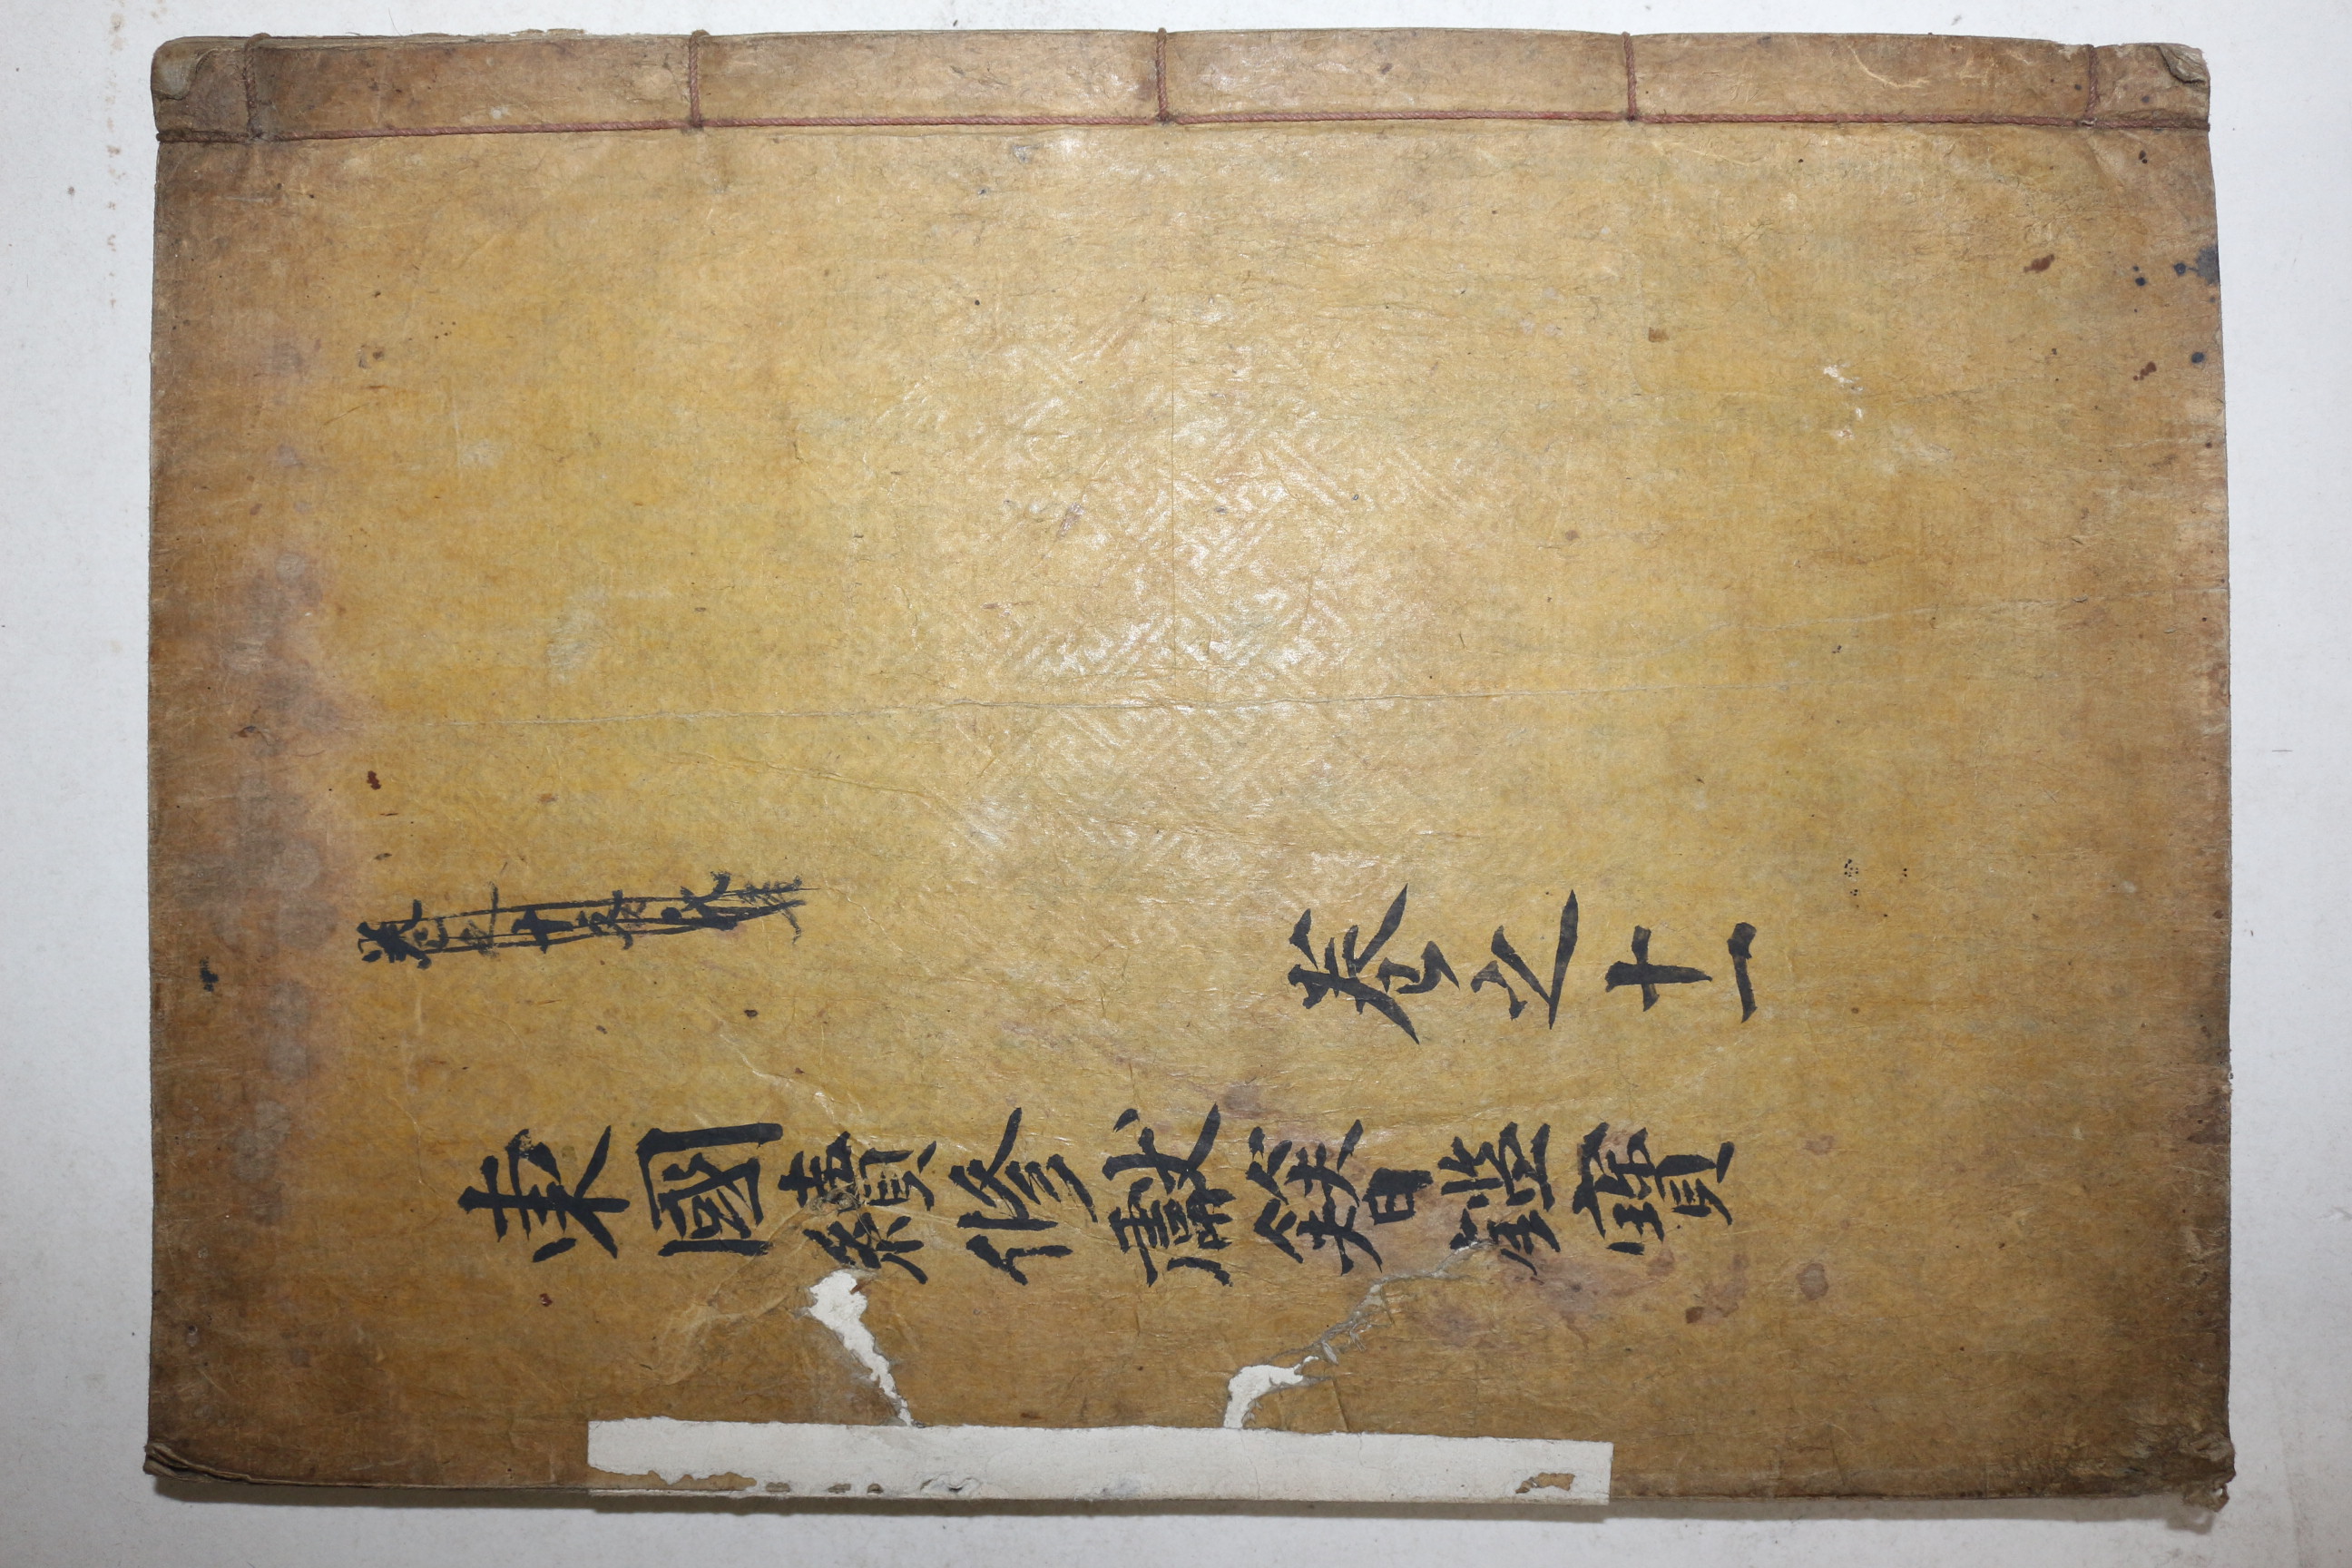 卷之十
卷之十一
東國續修獻簪鑑寶